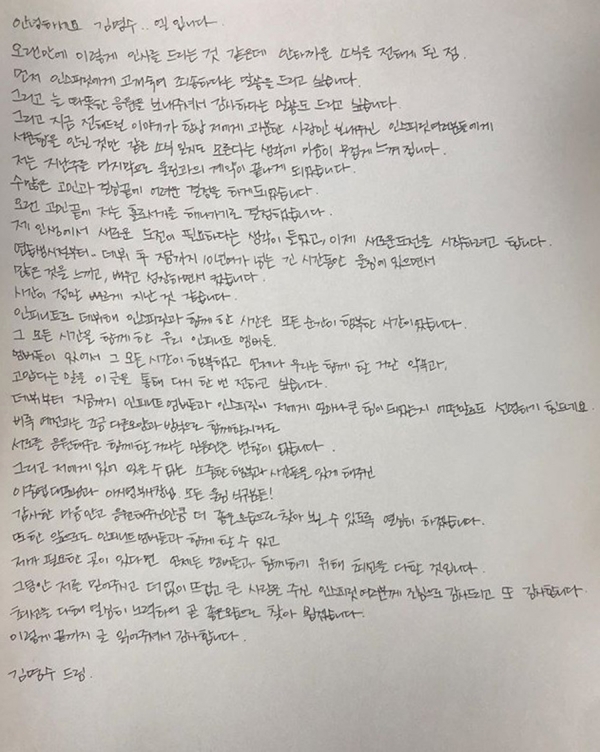 안녕하세요 김명수.. 엘 입니다.
오랜만에 이렇게 인사를 드리는 것 같은데 안타까운 소식을 전하게 된 점.
먼저 인스피릿에게 고개숙여 죄송하다는 말씀을 드리고 싶습니다.
그리고 늘 따뜻한 응원을 보내주셔서 감사하다는 말씀도 드리고 싶습니다.
그리고 지금 전해드릴 이야기가 항상 저에게 과분한 사랑만 보내주신 인스피릿 여러분들에게
서운함을 안길 것만 같은 소식 일지도 모른다는 생각에 마음이 무겁게 느껴 집니다.
저는 지난주를 마지막으로 울림과의 계약이 끝나게 되었습니다.
수많은 고민과 결심끝에 어려운 결정을 하게되었습니다.
오랜 고민끝에 저는 홀로서기를 해나가기로 결정하였습니다.
제 인생에서 새로운 도전이 필요하다는 생각이 들었고, 이제 새로운도전을 시작하려고 합니다.
연습생시절부터.. 데뷔 후 지금까지 10년여가 넘는 긴 시간동안 울림에 있으면서
많은 것을 느끼고, 배우고 성장하면서 컸습니다.
시간이 정말 빠르게 지난 것 같습니다.
인피니트로 데뷔해 인스피릿과 함께 한 시간은 모든 순간이 행복한 시간이었습니다.
그 모든 시간을 함께 한 우리 인피니트 멤버들,
멤버들이 있어서 그 모든 시간이 행복했고 언제나 우리는 함께 할 거란 약속과,
고맙다는 말을 이 글을 통해 다시 한 번 전하고 싶습니다.
데뷔부터 지금까지 인피니트 멤버들과 인스피릿이 저에게 얼마나 큰 힘이 되었는지 어떤말로도 설명하기 힘드네요.
비록 예전과는 조금 다른모양과 방향으로 함께할지라도
서로를 응원해주고 함께할 거라는 믿음만은 변함이 없습니다.
그리고 저에게 있어 잊을 수 없는 소중한 행복과 시간들을 있게 해주신
이중엽대표님과 이지영부사장님. 모든 울림 식구분들!
감사한 마음안고 응원해주신만큼 더 좋은모습으로 찾아 뵐 수 있도록 열심히 하겠습니다.
또한 앞으로도 인피니트멤버들과 함께 할 수 있고
제가 필요한 곳이 있다면 언제든 멤버들과 함께하기 위해 최선을 다할 것입니다.
그동안 저를 믿어주시고 더없이 뜨겁고 큰 사랑을 주신 인스피릿 여러분께 진심으로 감사드리고 또 감사합니다.
최선을 다해 열심히 노력하여 곧 좋은모습으로 찾아 뵙겠습니다.
이렇게 끝까지 글 읽어주셔서 감사합니다.
김명수 드림.